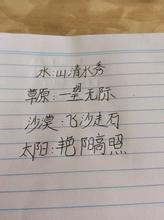 水:山清水秀
草原:一望无际
沙漠:飞沙走石
太阳:艳阳高照